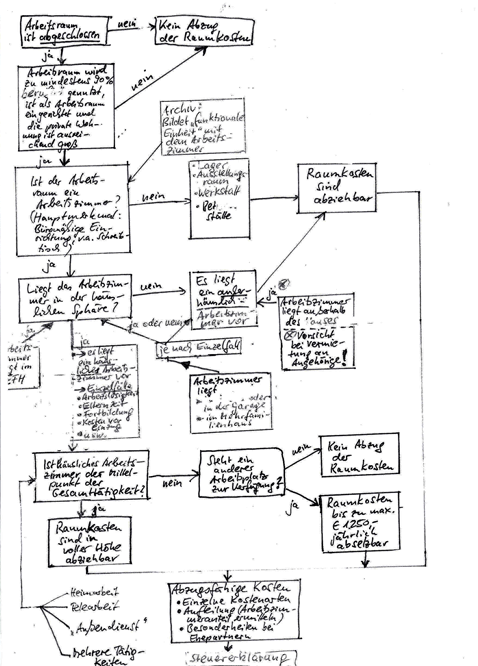 Arbeitsraum
ist abgeschlossen
nein
Kein Abzug
der Raumkosten
ja
Arbeitsraum wird
zu mindestens 90%
genutzt,
ist als Arbeitsraum
eingerichtet und
die private Woh-
nung ist ausrei-
chend groß
nein
Archiv:
Bildet "funktionale
Einheit" mit
dem Arbeits-
zimmer
ja
Ist der Arbeits-
raum ein
Arbeitszimmer?
(Hauptmerkmal:
Büromäßige Ein-
richtung, v.a. Schreib-
tisch)
nein
• Lager
• Ausstellungs-
raum
• Werkstatt
stätte
Raumkosten
sind
abziehbar
ja
Liegt das Arbeitszim-
mer in der häus-
lichen Sphäre?
nein
Es liegt
ein außer-
häusliches
Arbeitszim-
mer vor
ja
Arbeitszimmer
liegt außerhalb
des
Vorsicht
bei Vermie-
tung an
Angehörige!
ja oder nein
je nach Einzelfall
ja
Arbeitszimmer
liegt
oder
in der Garage
im Mehrfami-
lienhaus
ja
es liegt
ein häus-
liches Arbeits-
zimmer vor
Einzelfälle
• Arbeitslosigkeit
• Elternzeit
• Fortbildung
• Kosten vor
Einzug
• usw.
Ist häusliches Arbeits-
zimmer der Mittel-
punkt der
Gesamttätigkeit?
nein
Steht ein
anderer
Arbeitsplatz
zur Verfügung?
nein
Kein Abzug
der
Raumkosten
ja
Raumkosten
bis zu max.
€ 1250,-
jährlich
absetzbar
ja
Raumkosten
sind in
voller Höhe
abziehbar
Heimarbeit
Telearbeit
"Außendienst"
Mehrere Tätig-
keiten
Abzugsfähige Kosten
• Einzelne Kostenarten
• Aufteilung (Arbeitszim-
meranteil ermitteln)
• Besonderheiten bei
Ehepartnern
Steuererklärung